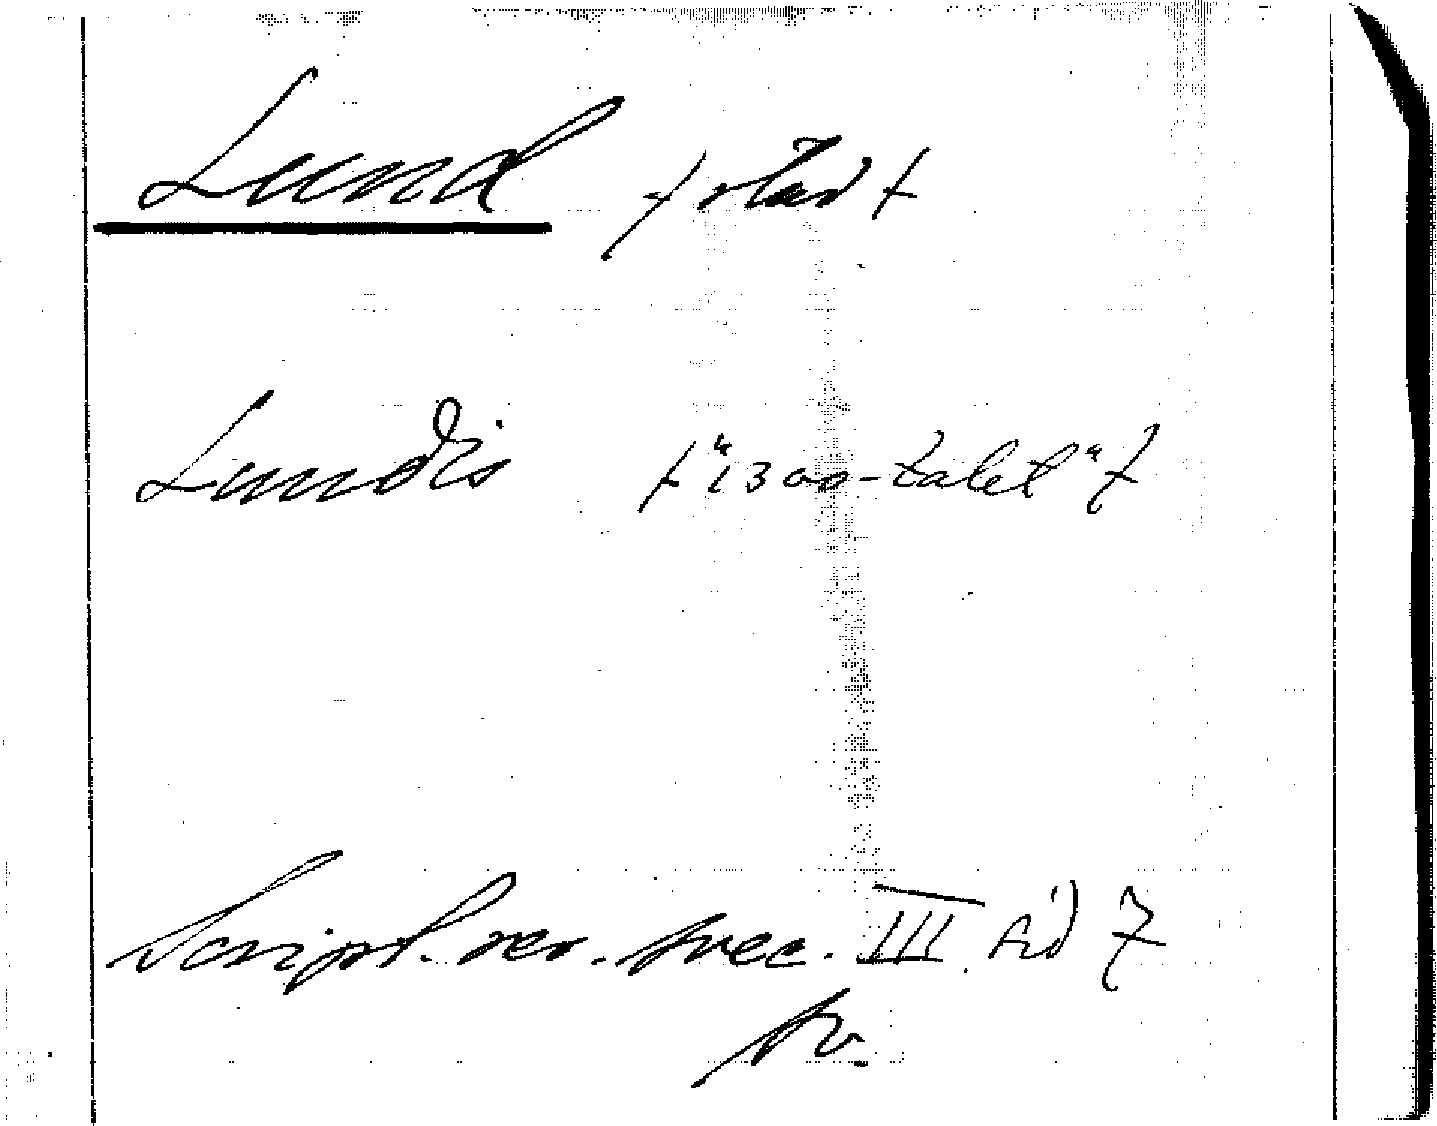 Lund / stad /
Lundis / "1300-talet" /
Script. rer. svec. III sid 7
sv.